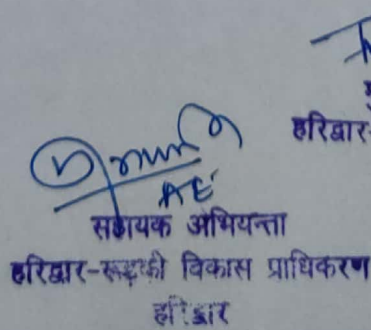 हरिद्वार-
AE
सहायक अभियन्ता
हरिद्वार-रूड़की विकास प्राधिकरण
हरिद्वार